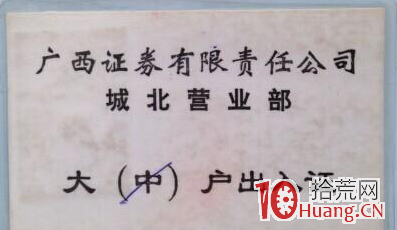 广西证券有限责任公司
城北营业部
大（中）户出入证
10 拾荒网
Huang.CN